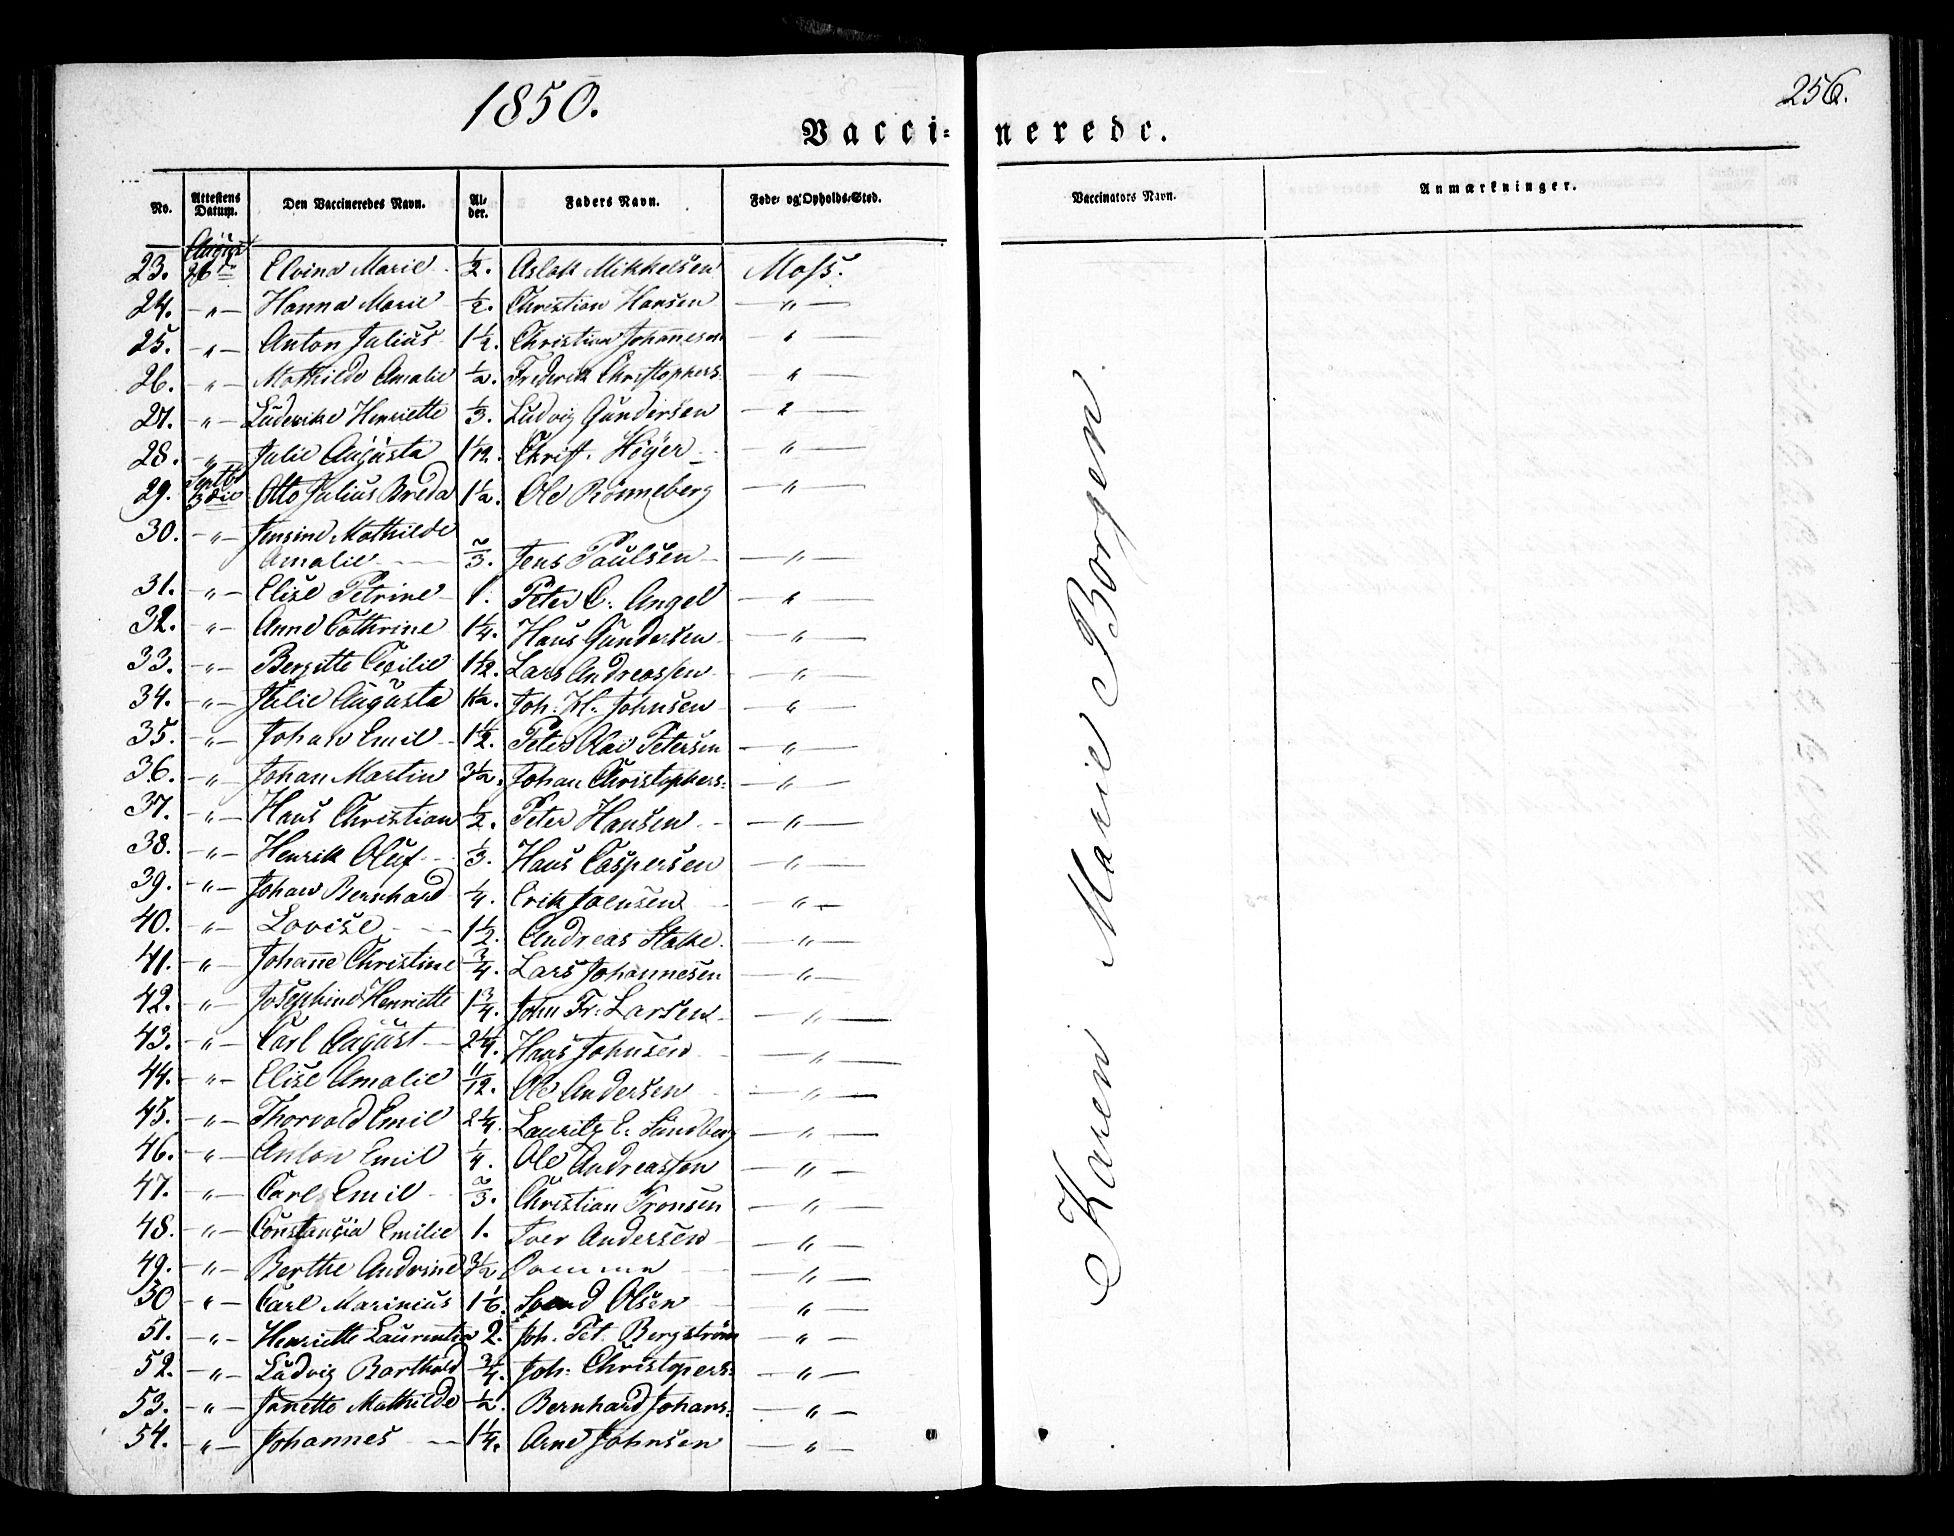 1850.
256.
Vacci- nerede.
No. Attestens Datum. Den Vaccineredes Navn. Al- der. Faders Navn. Føde- og Opholds-Sted. Vaccinators Navn. Anmærkninger.
23. August 26de Elvina Marie 1/2. Aslak Mikkelsen Moss.
24. -"- Hanna Marie 1/2. Christian Hansen -"-
25. -"- Anton Julius 1 1/2. Christian Johannesen -"-
26. -"- Mathilde Amalie 1/2. Frederik Christophers. -"-
27. -"- Ludevike Henriette 1/3. Ludvig Gundersen -"-
28. -"- Julie Augusta 1 1/12. Christ. Höyer -"-
29. Septbr 3die Otto Julius Breda 1 1/2. Ole Rönneberg -"-
30. -"- Jensine Mathilde
Amalie 2/3. Jens Paulsen -"-
31. -"- Elise Petrine 1. Peter C. Angel -"-
32. -"- Anne Cathrine 1 1/4. Hans Gundersen -"-
33. -"- Bergitte Cecilie 1 1/2. Lars Andreassen -"-
34. -"- Julie Augusta 1 1/2. Joh. H. Johnsen -"-
35. -"- Johan Emil 1 1/2. Peter Olai Petersen -"-
36. -"- Johan Martin 3 1/2. Johan Christophers: -"-
37. -"- Hans Christian 1/2. Peter Hansen -"-
38. -"- Henrik Oluf 1/3. Hans Caspersen -"-
39. -"- Johan Bernhard 1/4. Erik Joensen -"-
40. -"- Lovise 1 1/2. Andreas Stake. -"-
41. -"- Johanne Christine 3/4. Lars Johannesen -"-
42. -"- Josephine Henriette 1 3/4. John Fr. Larsen -"-
43. -"- Carl August 2 1/4. Hans Johnsen -"-
44. -"- Elise Amalie 11/12. Ole Andersen -"-
45. -"- Thorvald Emil 2 1/4. Lauritz E. Sundberg -"-
46. -"- Anton Emil 1/4. Ole Andreassen -"-
47. -"- Carl Emil 2/3. Christian Tronsen -"-
48. -"- Constancia Emilie 1. Iver Andersen -"-
49. -"- Berthe Andrine 3 1/2 -"-
50 -"- Carl Marinius 1 1/6. Svend Olsen -"-
51. -"- Henriette Laurentin 2. Joh. Pet. Bergström -"-
52. -"- Ludvig Barthold 3/4. Joh. Christopers: -"-
53. -"- Janette Mathilde 1/2. Bernhard Johans: -"-
54. -"- Johannes 1 1/4. Arne Johnsen -"-
Karen Marie Borgen.